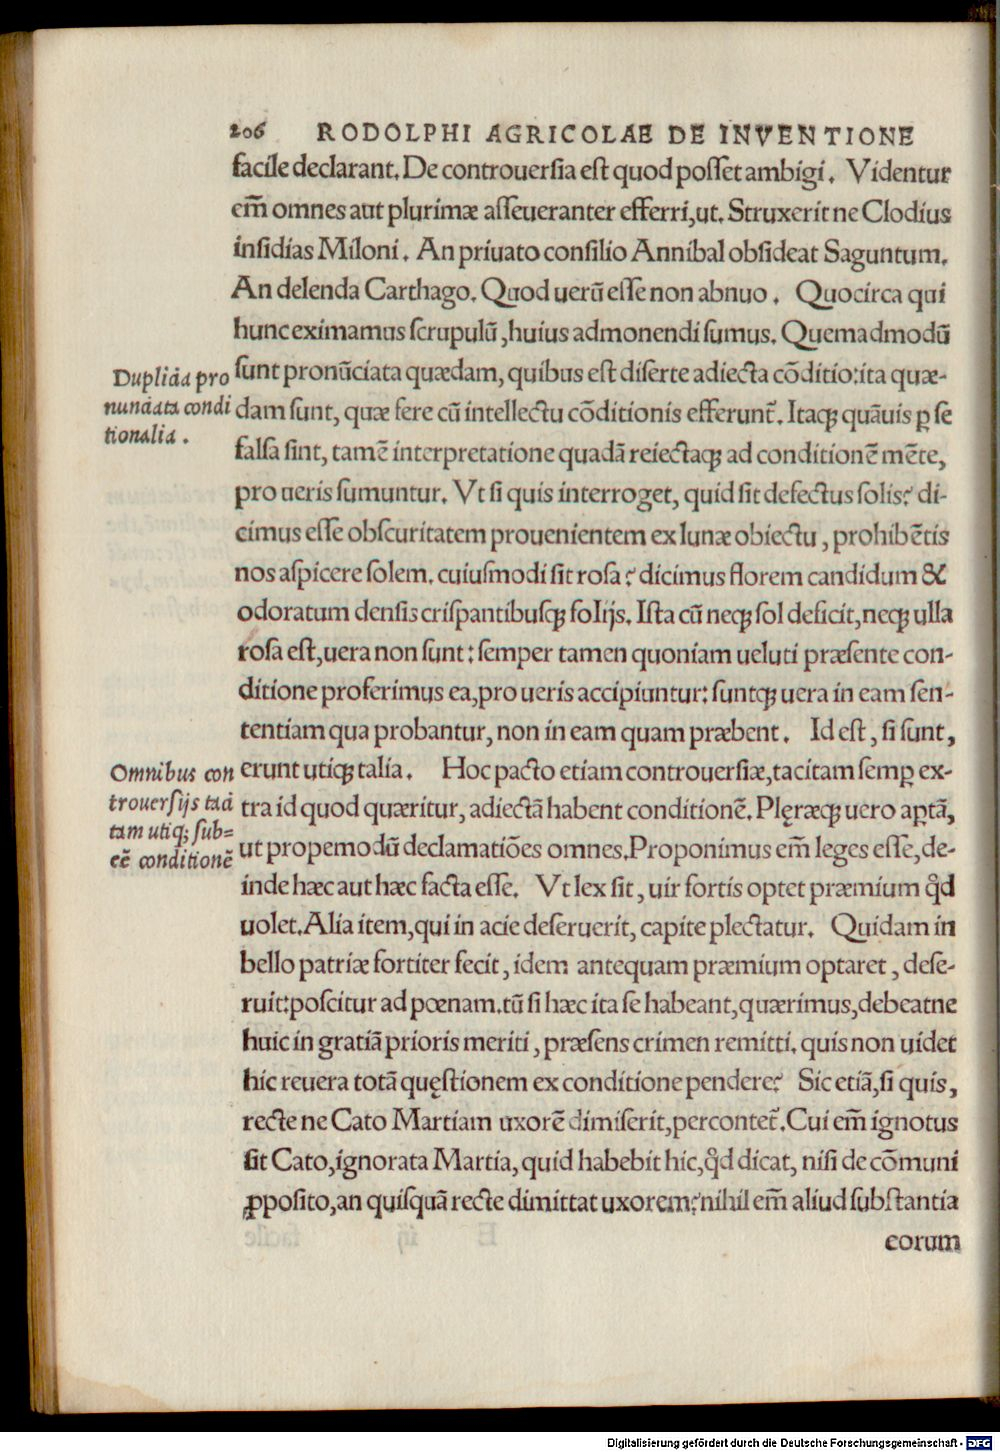 206 RODOLPHI AGRICOLAE DE INVENTIONE
facile declarant. De controuerſia eſt quod poſſet ambigi. Videntur
em̃ omnes aut plurimæ aſſeueranter efferri, ut. Struxerit ne Clodius
inſidias Miloni. An priuato conſilio Annibal obſideat Saguntum.
An delenda Carthago. Quod uerũ eſſe non abnuo. Quocirca qui
hunc eximamus ſcrupulũ, huius admonendi ſumus. Quemadmodũ
ſunt pronũciata quædam, quibus eſt diſerte adiecta cõditio: ita quæ-
dam ſunt, quæ fere cũ intellectu cõditionis efferunt᷑. Itaqꝫ quãuis ꝑ ſe
falſa ſint, tamẽ interpretatione quadã reiectaqꝫ ad conditionẽ mẽte,
pro ueris ſumuntur. Vt ſi quis interroget, quid ſit defectus ſolis? di-
cimus eſſe obſcuritatem prouenientem ex lunæ obiectu, prohibẽtis
nos aſpicere ſolem. cuiuſmodi ſit roſa? dicimus florem candidum &
odoratum denſis criſpantibuſqꝫ folijs. Iſta cũ neqꝫ ſol deficit, neqꝫ ulla
roſa eſt, uera non ſunt: ſemper tamen quoniam ueluti præſente con-
ditione proferimus ea, pro ueris accipiuntur: ſuntqꝫ uera in eam ſen-
tentiam qua probantur, non in eam quam præbent. Id eſt, ſi ſunt,
erunt utiqꝫ talia. Hoc pacto etiam controuerſiæ, tacitam ſemꝑ ex-
tra id quod quæritur, adiectã habent conditionẽ. Plęræqꝫ uero aꝑtã,
ut propemodũ declamatiões omnes. Proponimus em̃ leges eſſe, de-
inde hæc aut hæc facta eſſe. Vt lex ſit, uir fortis optet præmium qd̃
uolet. Alia item, qui in acie deſeruerit, capite plectatur. Quidam in
bello patriæ fortiter fecit, idem antequam præmium optaret, deſe-
ruit: poſcitur ad pœnam. tũ ſi hæc ita ſe habeant, quærimus, debeatne
huic in gratiã prioris meriti, præſens crimen remitti. quis non uidet
hic reuera totã quęſtionem ex conditione pendere? Sic etiã, ſi quis,
recte ne Cato Martiam uxorẽ dimiſerit, percontet᷑. Cui em̃ ignotus
ſit Cato, ignorata Martia, quid habebit hic, qd̃ dicat, niſi de cõmuni
ꝓpoſito, an quiſquã recte dimittat uxorem? nihil em̃ aliud ſubſtantia
eorum
Duplicia pro
nunciata condi
tionalia.
Omnibus con
trouerſijs taci
tam utiqꝫ ſub=
eẽ conditionẽ
Digitalisierung gefördert durch die Deutsche Forschungsgemeinschaft - DFG